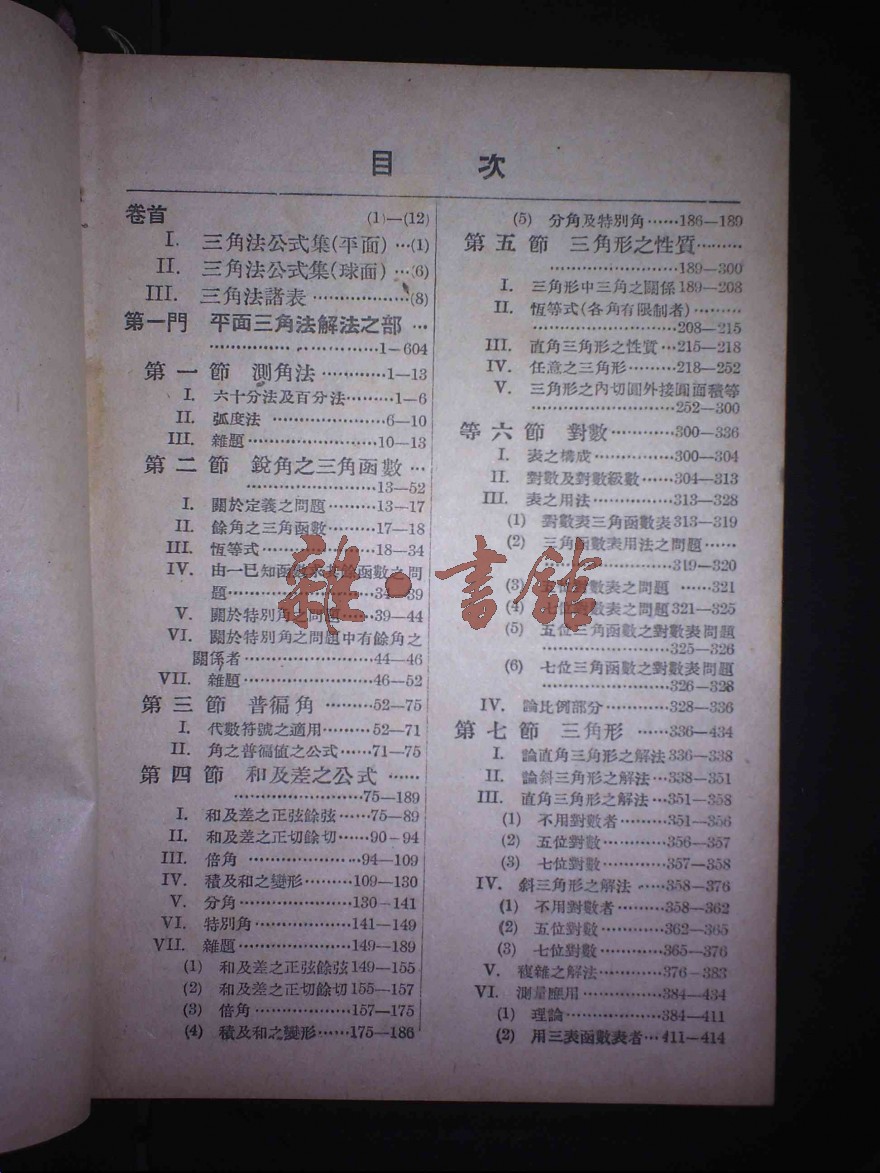 目 次
卷首 (1)—(12)
I. 三角法公式集(平面) …(1)
II. 三角法公式集(球面) …(6)
III. 三角法諸表 ………………(8)
第一門 平面三角法解法之部 …
…………………………1—604
第一節 測角法 …………1—13
I. 六十分法及百分法………1—6
II. 弧度法 ………………6—10
III. 雜題…………………10—13
第二節 銳角之三角函數 …
……………………13—52
I. 關於定義之問題………13—17
II. 餘角之三角函數………17—18
III. 恆等式………………18—34
IV. 由一已知函數求其餘函數之問
題……………………34—39
V. 關於特別角之問題……39—44
VI. 關於特別角之問題中有餘角之
關係者…………………44—46
VII. 雜題…………………46—52
第三節 普徧角 ………52—75
I. 代數符號之適用………52—71
II. 角之普徧値之公式……71—75
第四節 和及差之公式 ……
…………………75—189
I. 和及差之正弦餘弦……75—89
II. 和及差之正切餘切……90—94
III. 倍角 ………………94—109
IV. 積及和之變形………109—130
V. 分角…………………130—141
VI. 特別角………………141—149
VII. 雜題…………………149—189
(1) 和及差之正弦餘弦149—155
(2) 和及差之正切餘切155—157
(3) 倍角………………157—175
(4) 積及和之變形……175—186
(5) 分角及特別角……186—189
第五節 三角形之性質………
……………………189—300
I. 三角形中三角之關係189—208
II. 恆等式(各角有限制者)………
……………………208—215
III. 直角三角形之性質…215—218
IV. 任意之三角形………218—252
V. 三角形之內切圓外接圓面積等
……………………252—300
等六節 對數…………300—336
I. 表之構成……………300—304
II. 對數及對數級數……304—313
III. 表之用法……………313—328
(1) 對數表三角函數表313—319
(2) 三角函數表用法之問題……
……………………319—320
(3) 五位對數表之問題 ……321
(4) 七位對數表之問題321—325
(5) 五位三角函數之對數表問題
……………………325—326
(6) 七位三角函數之對數表問題
……………………326—328
IV. 論比例部分…………328—336
第七節 三角形 ……336—434
I. 論直角三角形之解法336—338
II. 論斜三角形之解法…338—351
III. 直角三角形之解法…351—358
(1) 不用對數者………351—356
(2) 五位對數…………356—357
(3) 七位對數…………357—358
IV. 斜三角形之解法 ……358—376
(1) 不用對數者………358—362
(2) 五位對數…………362—365
(3) 七位對數…………365—376
V. 複雜之解法…………376—383
VI. 測量應用……………384—434
(1) 理論………………384—411
(2) 用三表函數表者…411—414
雜·書館